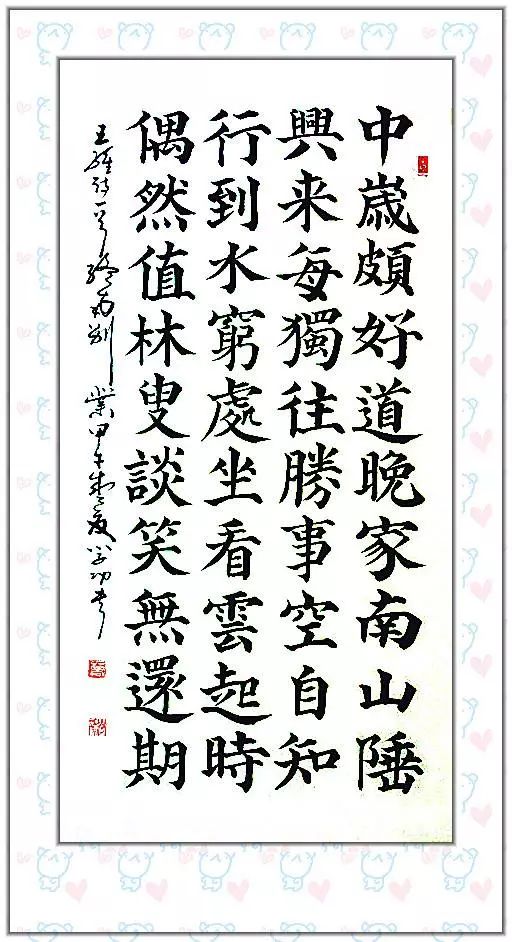 中嵗頗好道晚家南山陲
興来每獨往勝事空自知
行到水窮處坐看雲起時
偶然值林叟談笑無還期
王維詩一首終南别業甲午盛夏学功书